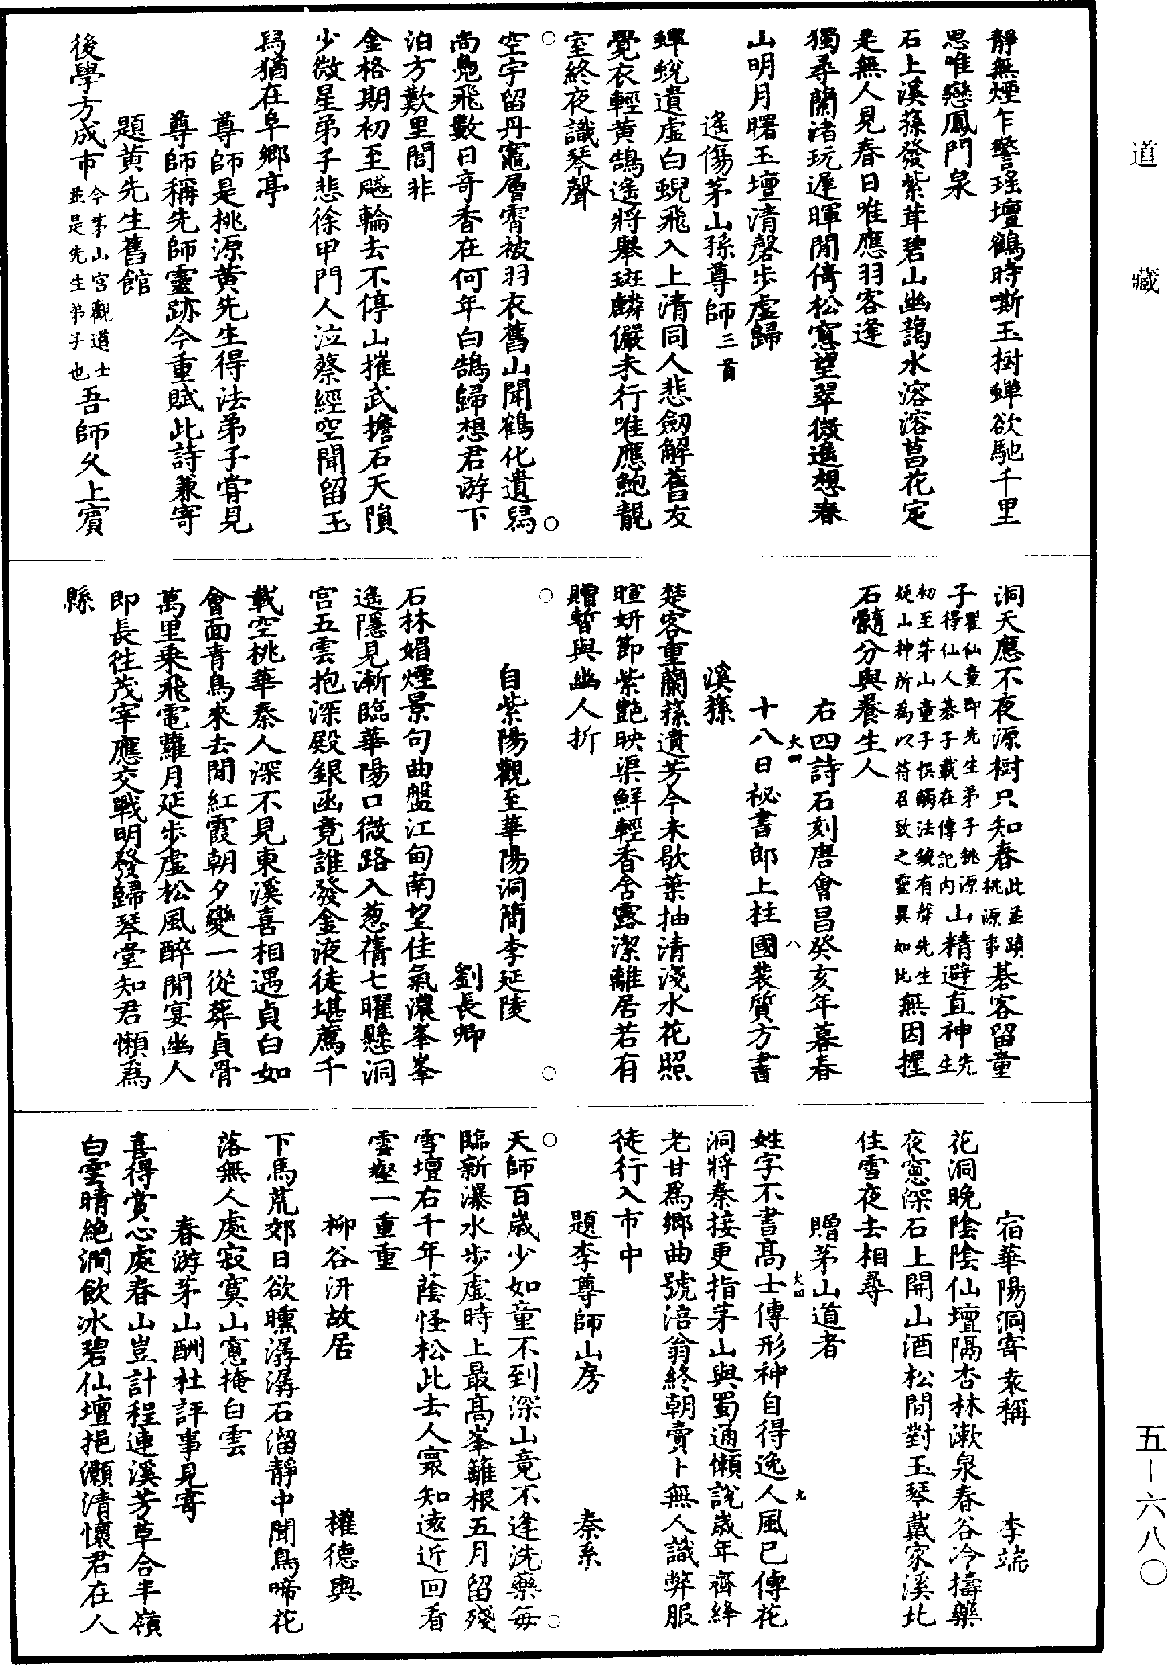 道藏
五—六八〇
靜無煙乍警瑤壇鶴時嘶玉樹蟬欲馳千里
思唯戀鳳門泉
石上溪蓀發紫茸碧山幽藹水溶溶菖花定
是無人見春日唯應羽客逢
獨尋蘭渚玩遲暉閒倚松窻望翠微遙想春
山明月曙玉壇清磬步虛歸
遙傷茅山孫尊師三首
蟬蛻遺虛白蜺飛入上清同人悲劒解舊友
覺衣輕黃鵠遙將舉斑麟儼未行唯應鮑靚
室終夜識琴聲
空宇留丹竈層霄被羽衣舊山聞鶴化遺舄
尚鳧飛數日奇香在何年白鵠歸想君游下
泊方歎里閭非
金格期初至飈輪去不停山摧武擔石天隕
少微星弟子悲徐甲門人泣蔡經空聞留玉
舄猶在阜鄉亭
尊師是桃源黃先生得法弟子嘗見
尊師稱先師靈跡今重賦此詩兼寄
題黃先生舊館
後學方成市今茅山宮觀道士並是先生弟子也吾師久上賓
洞天應不夜源樹只知春此並蹟桃源事碁客留童
子瞿仙童即先生弟子桃源得仙人碁子載在傳記內山精避直神先生
初至茅山童子悞觸法鏡有聲先生
娆山神所為以符召致之靈異如此無因握
石髓分與養生人
右四詩石刻唐會昌癸亥年暮春
十八日秘書郎上柱國裴質方書
溪蓀
楚客重蘭蓀遺芳今未歇葉抽清淺水花照
暄妍節紫艷映渠鮮輕香含露潔離居若有
贈暫與幽人折
自紫陽觀至華陽洞簡李延陵
劉長卿
石林媚煙景句曲盤江甸南望佳氣濃峯峯
遙隱見漸臨華陽口微路入葱蒨七曜懸洞
宮五雲抱深殿銀函竟誰發金液徒堪薦千
載空桃華秦人深不見東溪喜相遇貞白如
會面青鳥來去閒紅霞朝夕變一從葬貞骨
萬里乘飛電蘿月延步虛松風醉閒宴幽人
即長往茂宰應交戰明發歸琴堂知君懶為
縣
宿華陽洞寄袁稱　李端
花洞晚陰陰仙壇隔杏林漱泉春谷冷擣藥
夜窻深石上開山酒松間對玉琴戴家溪北
住雪夜去相尋
贈茅山道者
姓字不書髙士傳形神自得逸人風已傳花
洞將秦接更指茅山與蜀通懶說歲年齊絳
老甘爲鄉曲號涪翁終朝賣卜無人識弊服
徒行入市中
題李尊師山房　秦系
天師百歲少如童不到深山竟不逢洗藥每
臨新瀑水步虛時上最高峯籬根五月留殘
雪壇右千年蔭怪松此去人寰知遠近回看
雲壑一重重
柳谷汧故居　權德輿
下馬荒郊日欲曛潺潺石溜靜中聞鳥啼花
落無人處寂寞山窻掩白雲
春游茅山酬杜評事見寄
喜得賞心處春山豈計程連溪芳草合半嶺
白雲晴絶澗飲冰碧仙壇挹灝清懷君在人